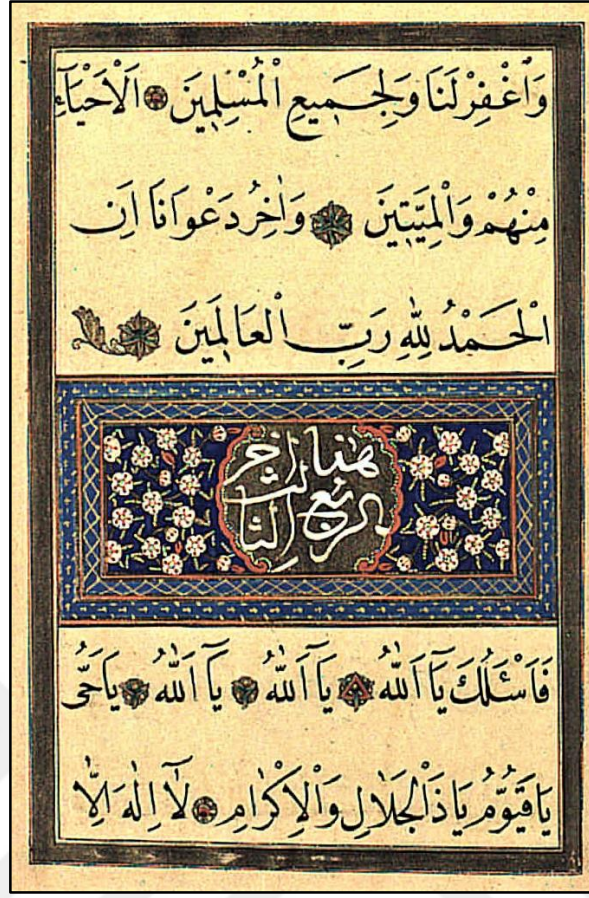 وَاغْفِرْ لَنَا وَلِجَمِيعِ الْمُسْلِمِينَ الْاَحْيَآءِ
مِنْهُمْ وَالْمَيِّتِينَ وَاٰخِرُ دَعْوَانَا اَنِ
الْحَمْدُ لِلّٰهِ رَبِّ الْعَالَمِينَ
هنا اخر
الربع الثالث
فَاَسْئَلُكَ يَآ اَللّٰهُ يَآ اَللّٰهُ يَآ اَللّٰهُ يَاحَىُّ
يَاقَيُّوْمُ يَاذَا الْجَلَالِ وَالْاِكْرَامِ لَآ اِلٰهَ اِلَّا